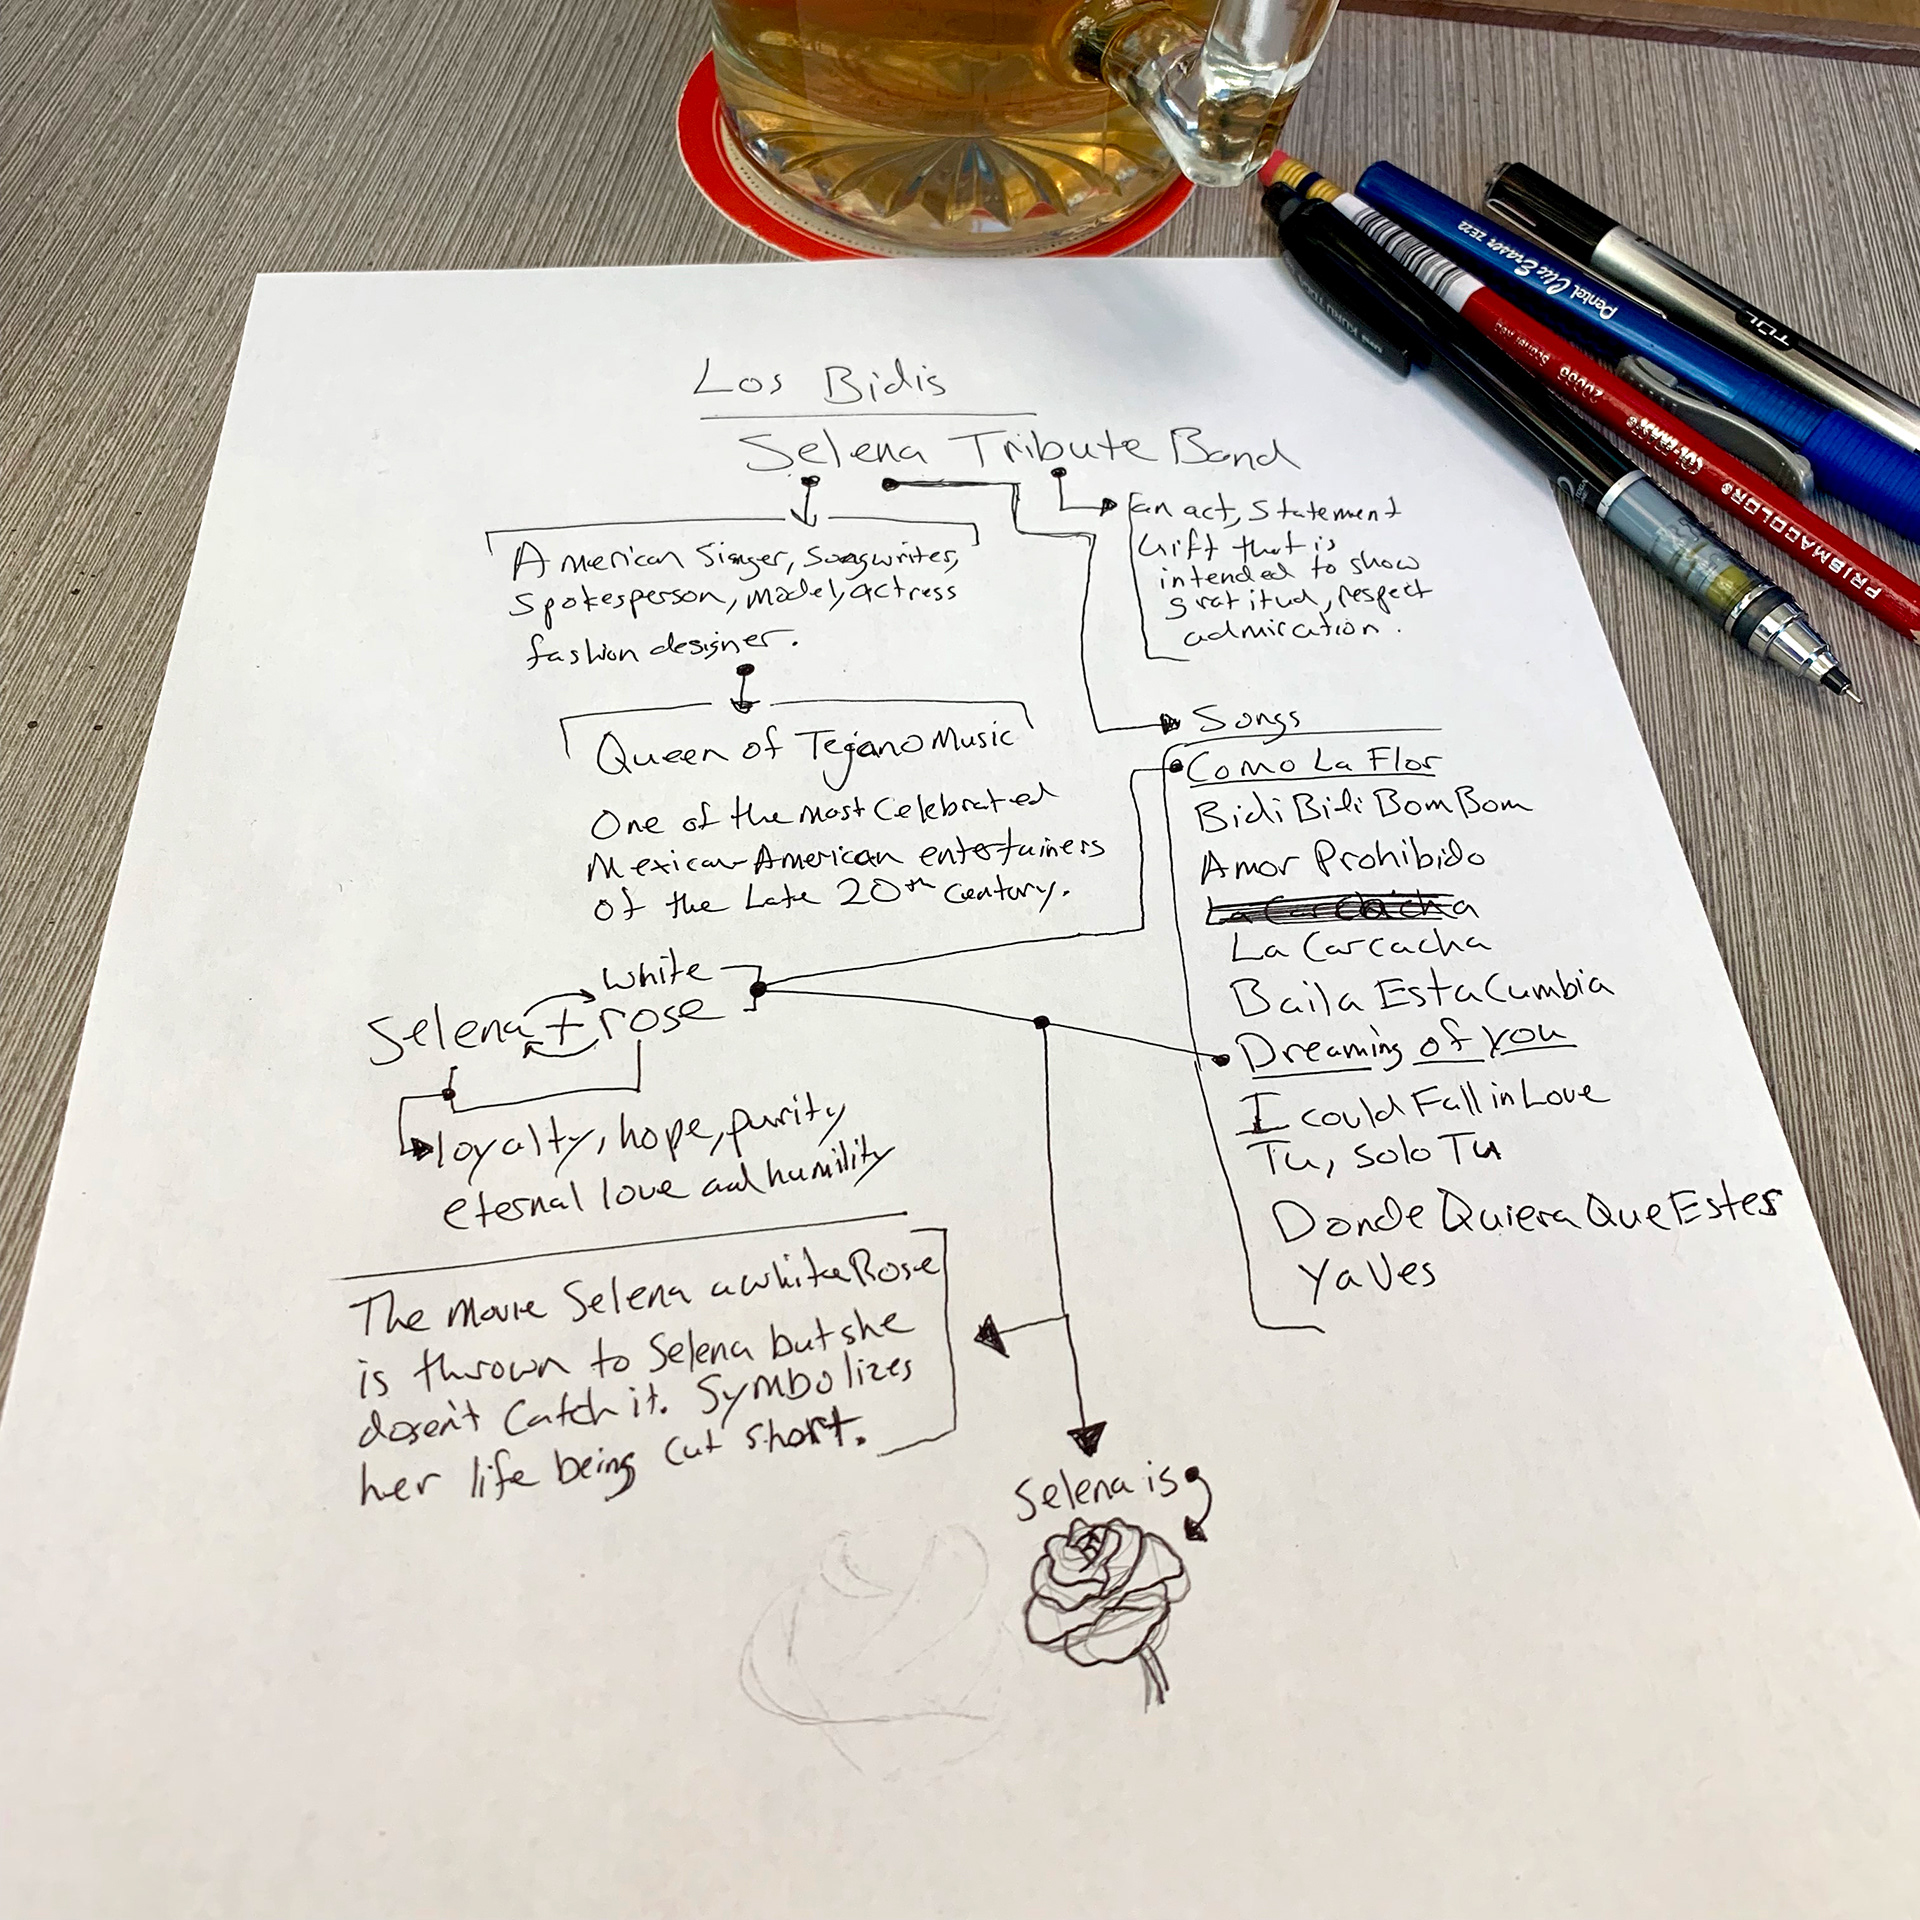 Los Bidis
Selena Tribute Band
American Singer, Songwriter,
Spokesperson, model, actress
fashion designer.
an act, Statement
Gift that is
intended to show
gratitud, respect
admiration.
Queen of Tejano Music
One of the most Celebrated
Mexican-American entertainers
of the Late 20th Century.
Songs
Como La Flor
Bidi Bidi Bom Bom
Amor Prohibido
La Carcacha
Baila Esta Cumbia
Dreaming of You
I could Fall in Love
Tu, Solo Tu
Donde Quiera Que Estes
Ya Ves
white
Selena + rose
loyalty, hope, purity
eternal love and humility
The Movie Selena a white Rose
is thrown to Selena but she
dosen't Catch it. Symbolizes
her life being cut short.
Selena is
Pentel Clic Eraser ZE22
TUL
PRISMACOLOR®
COL-ERASE®
20066
KURUTOGA
uni